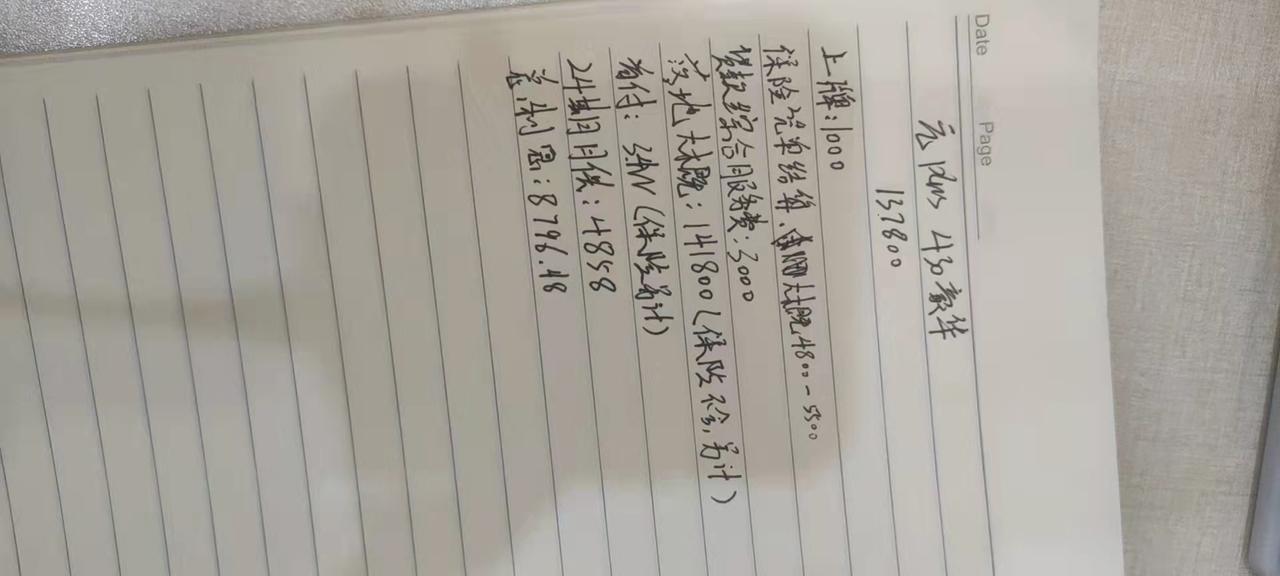 Date
Page
元plus 430豪华
137800
上牌:1000
保险凭单结算、大概4800-5500
贷款综合服务费:3000
落地大概:141800(保险不含,另计)
首付:3.4W(保险另计)
24期月供:4858
总利息:8796.48